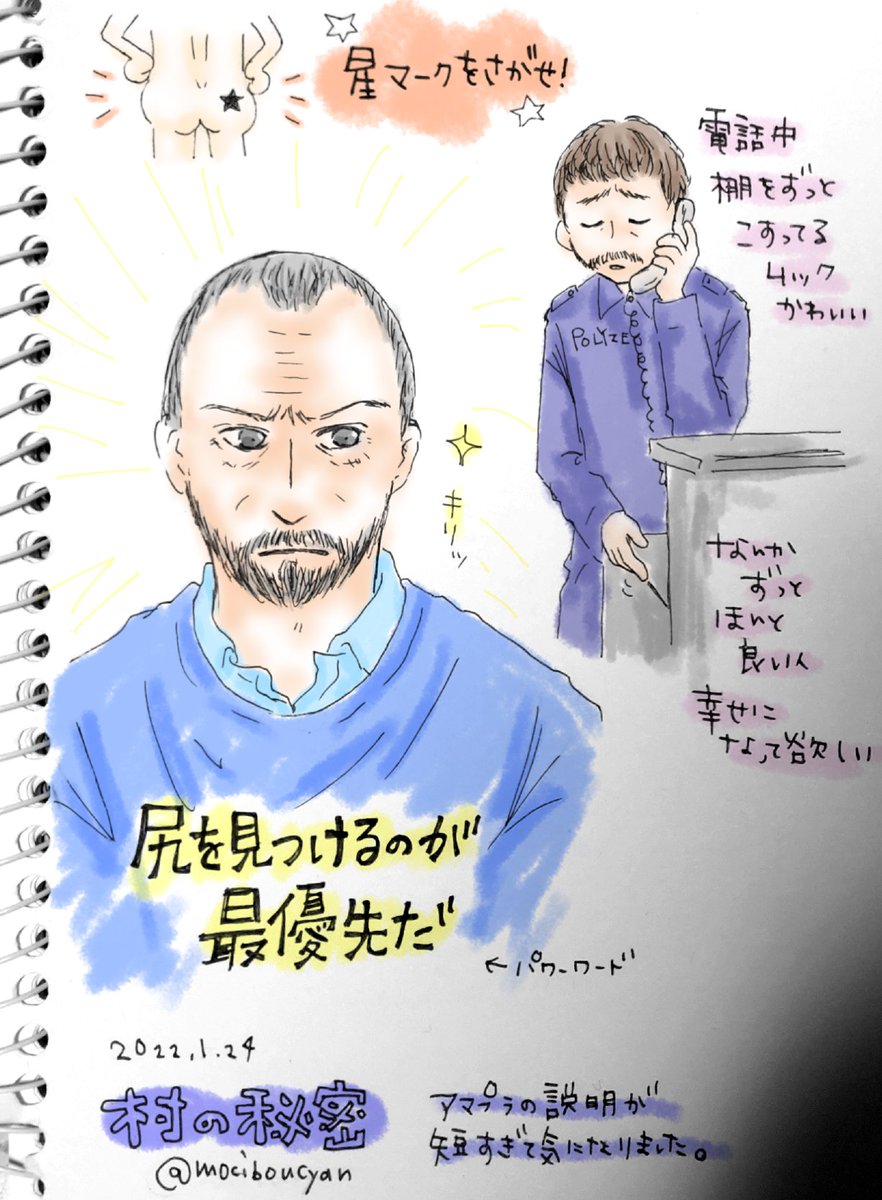 星マークをさがせ!
電話中
棚をずっと
こすってる
ムック
かわいい
POLIZE
キリッ
なんか
ずっと
ほんと
良い人
幸せに
なって欲しい
尻を見つけるのが
最優先だ
←パワーワード
2022.1.24
村の秘密
@mociboucyan
アマプラの説明が
短すぎて気になりました。